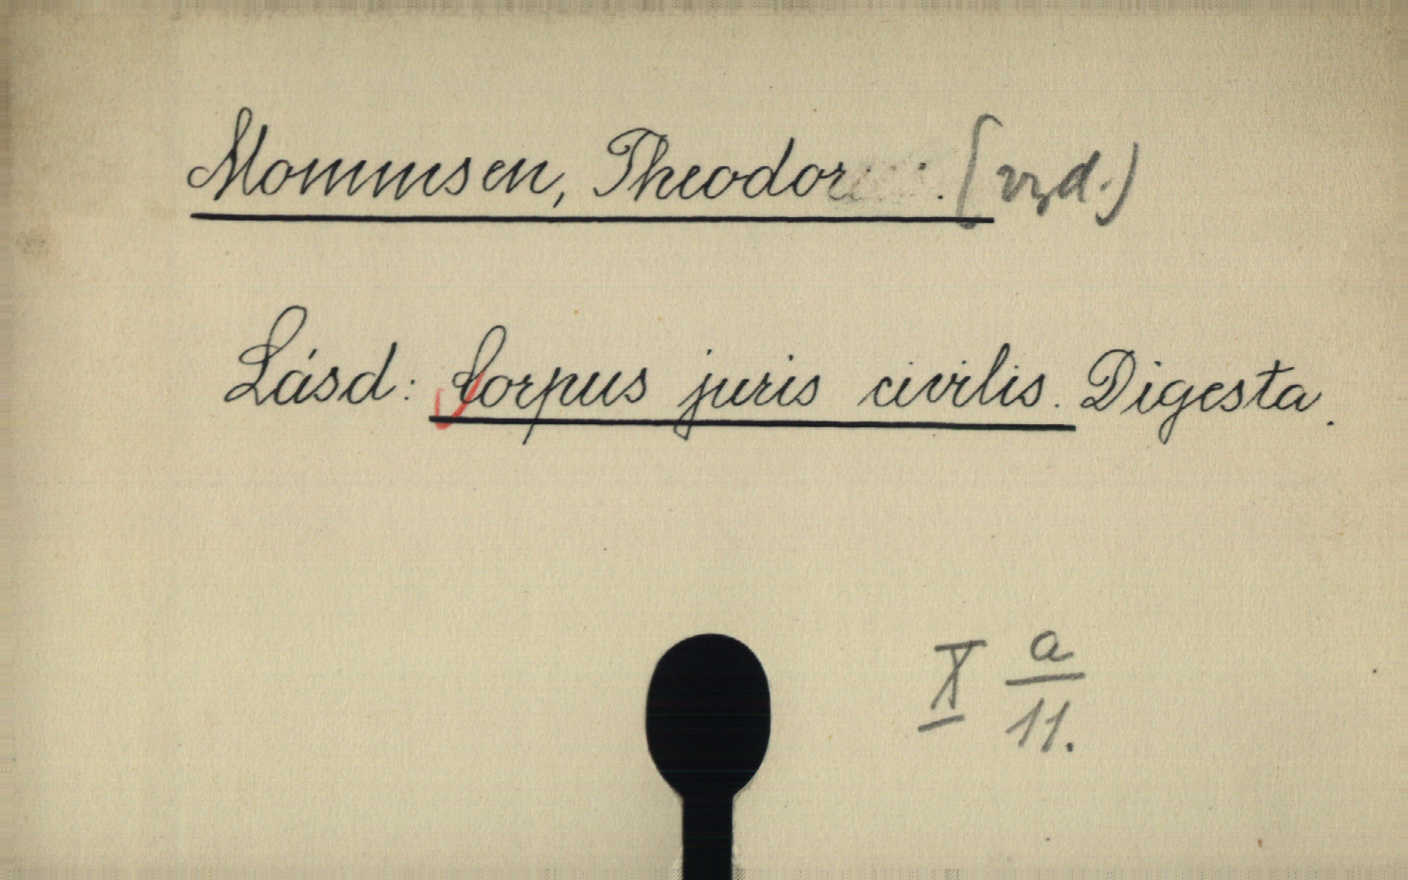 Mommsen, Theodor. (vyd.)
Lásd: Corpus juris civilis. Digesta.
X a/11.